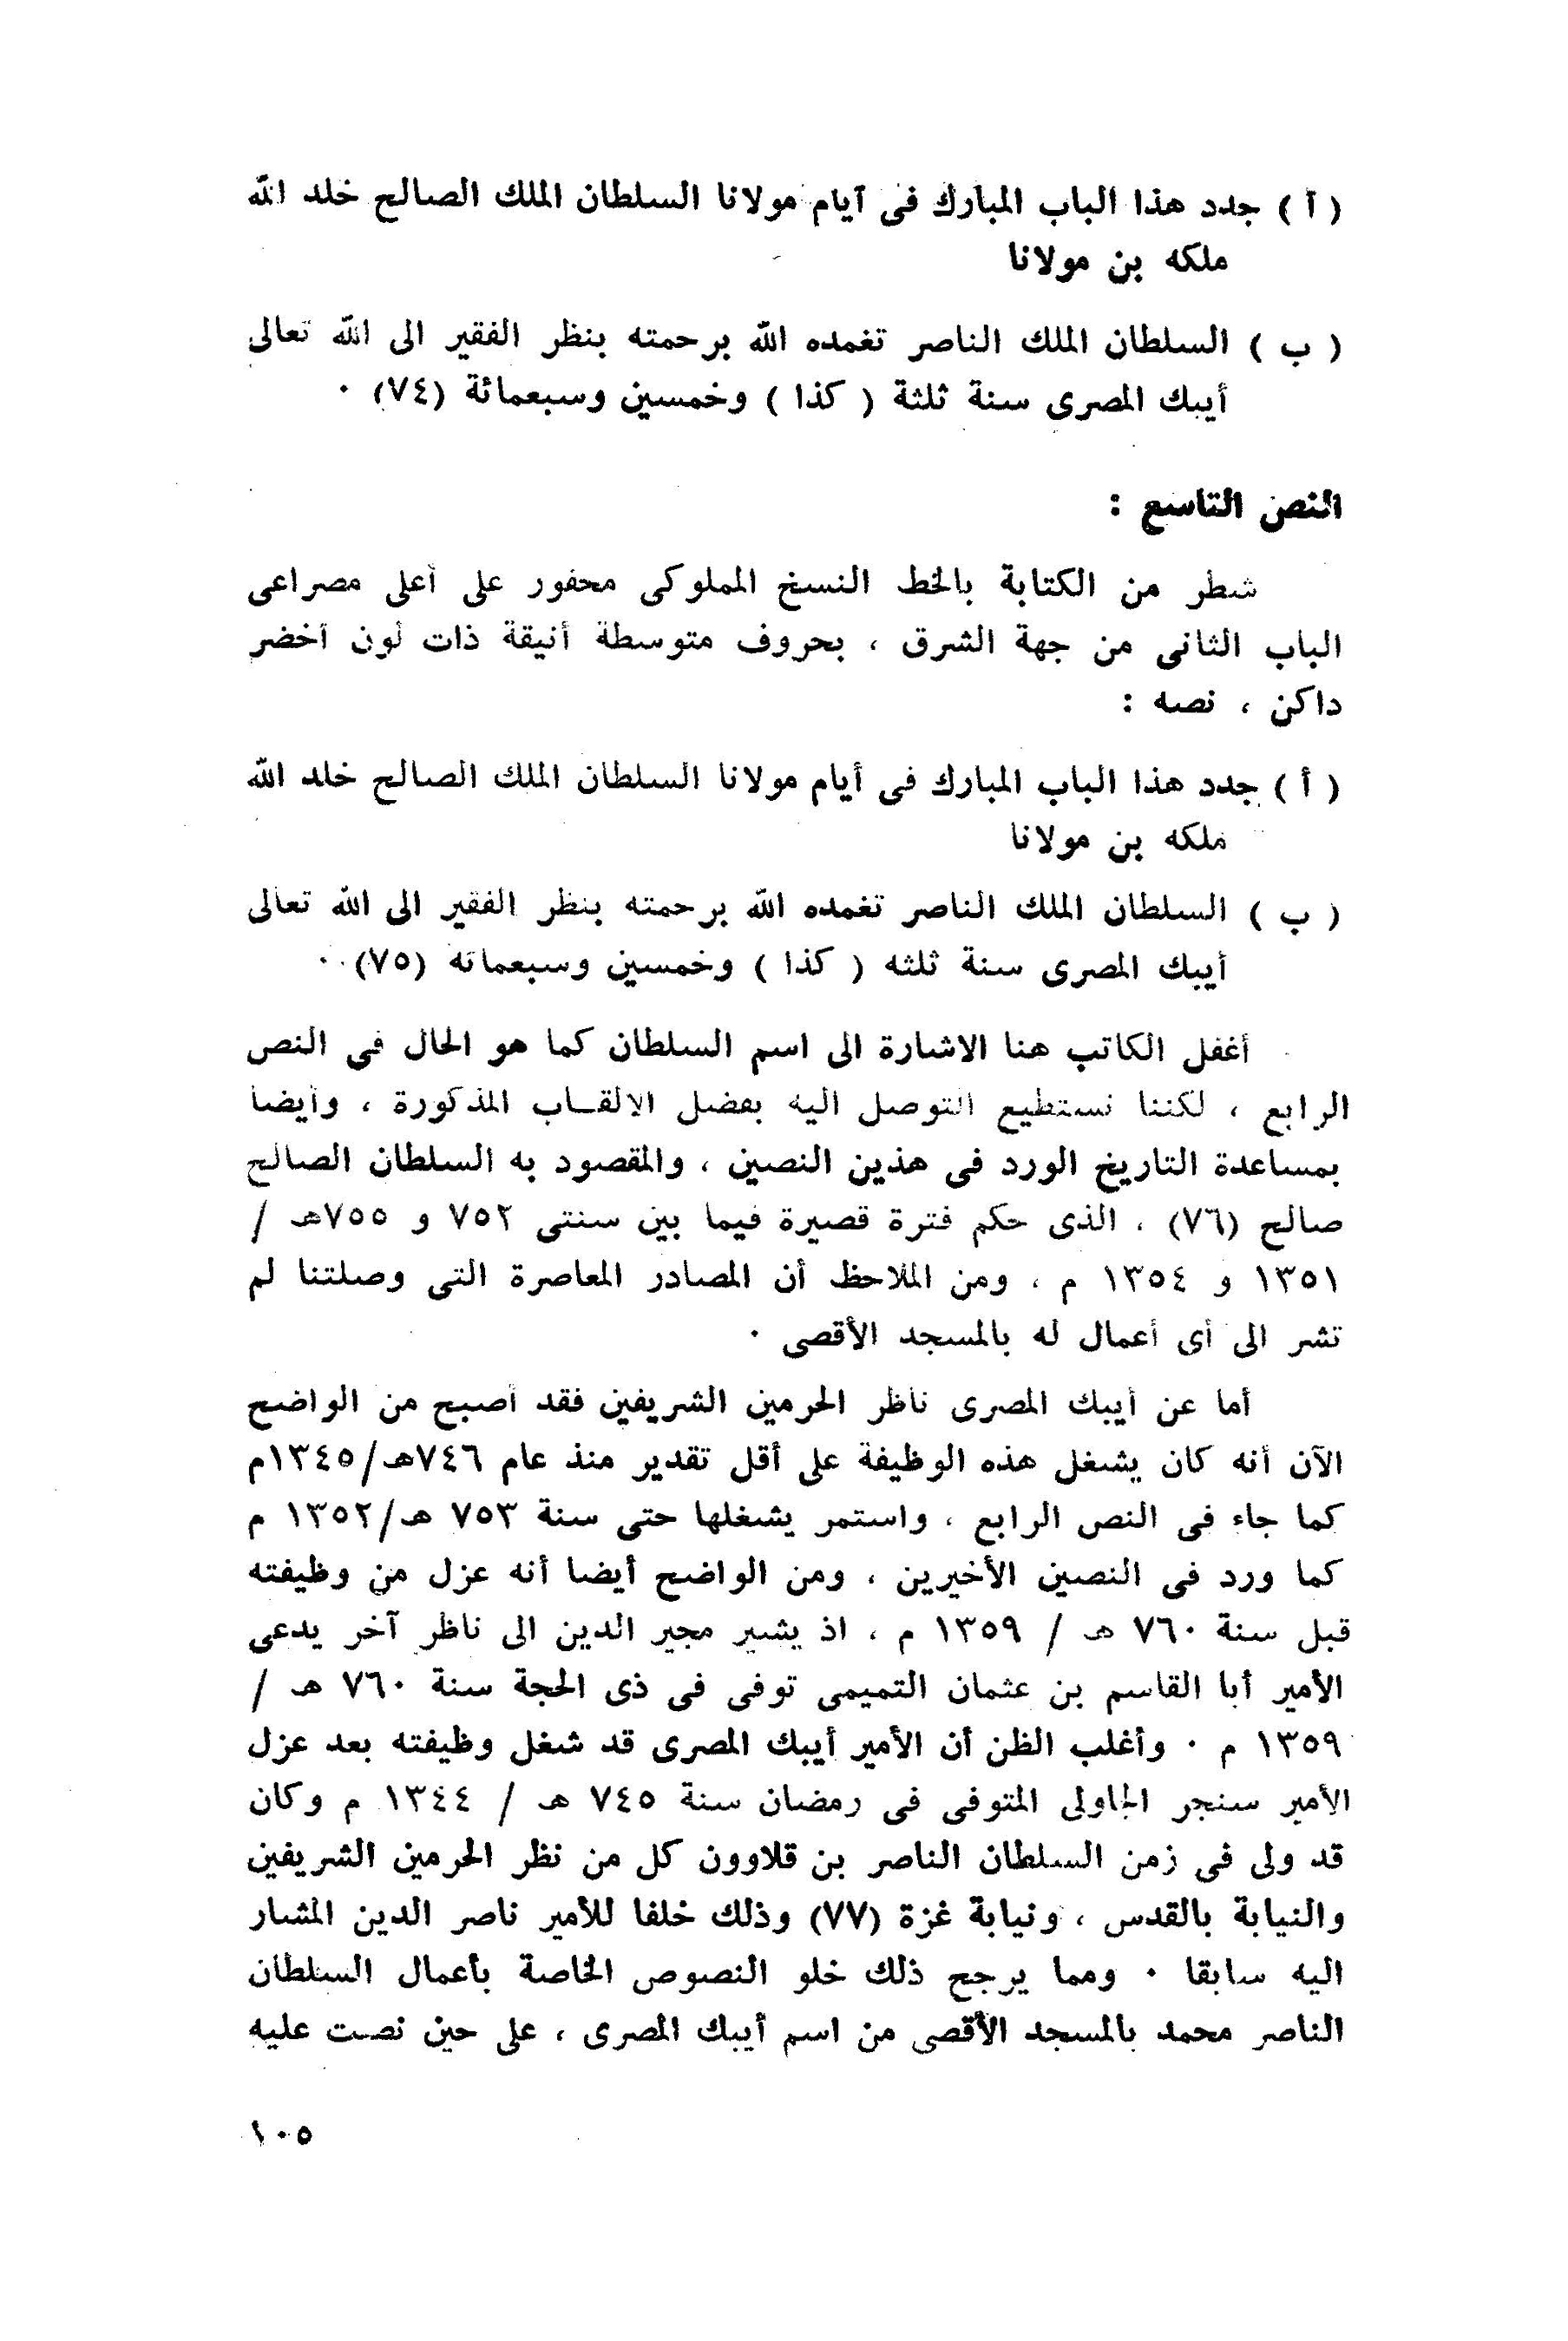 ( أ ) جدد هذا الباب المبارك فى أيام مولانا السلطان الملك الصالح خلد الله
ملكه بن مولانا
( ب ) السلطان الملك الناصر تغمده الله برحمته بنظر الفقير الى الله تعالى
أيبك المصرى سنة ثلثة ( كذا ) وخمسين وسبعمائة (٧٤) ٠
النص التاسع :
شطر من الكتابة بالخط النسخ المملوكى محفور على أعلى مصراعى
الباب الثانى من جهة الشرق ، بحروف متوسطة أنيقة ذات لون أخضر
داكن ، نصه :
( أ ) جدد هذا الباب المبارك فى أيام مولانا السلطان الملك الصالح خلد الله
ملكه بن مولانا
( ب ) السلطان الملك الناصر تغمده الله برحمته بنظر الفقير الى الله تعالى
أيبك المصرى سنة ثلثه ( كذا ) وخمسين وسبعمائه (٧٥) ٠
أغفل الكاتب هنا الاشارة الى اسم السلطان كما هو الحال فى النص
الرابع ، لكننا نستطيع التوصل اليه بفضل الالقاب المذكورة ، وأيضا
بمساعدة التاريخ الورد فى هذين النصين ، والمقصود به السلطان الصالح
صالح (٧٦) ، الذى حكم فترة قصيرة فيما بين سنتى ٧٥٢ و ٧٥٥هـ /
١٣٥١ و ١٣٥٤ م ، ومن الملاحظ أن المصادر المعاصرة التى وصلتنا لم
تشر الى أى أعمال له بالمسجد الأقصى ٠
أما عن أيبك المصرى ناظر الحرمين الشريفين فقد أصبح من الواضح
الآن أنه كان يشغل هذه الوظيفة على أقل تقدير منذ عام ٧٤٦هـ/١٣٤٥م
كما جاء فى النص الرابع ، واستمر يشغلها حتى سنة ٧٥٣ هـ/١٣٥٢ م
كما ورد فى النصين الأخيرين ، ومن الواضح أيضا أنه عزل من وظيفته
قبل سنة ٧٦٠ هـ / ١٣٥٩ م ، اذ يشير مجير الدين الى ناظر آخر يدعى
الأمير أبا القاسم بن عثمان التميمى توفى فى ذى الحجة سنة ٧٦٠ هـ /
١٣٥٩ م ٠ وأغلب الظن أن الأمير أيبك المصرى قد شغل وظيفته بعد عزل
الأمير سنجر الجاولى المتوفى فى رمضان سنة ٧٤٥ هـ / ١٣٤٤ م وكان
قد ولى فى زمن السلطان الناصر بن قلاوون كل من نظر الحرمين الشريفين
والنيابة بالقدس ، ونيابة غزة (٧٧) وذلك خلفا للأمير ناصر الدين المشار
اليه سابقا ٠ ومما يرجح ذلك خلو النصوص الخاصة بأعمال السلطان
الناصر محمد بالمسجد الأقصى من اسم أيبك المصرى ، على حين نصت عليه
١٠٥